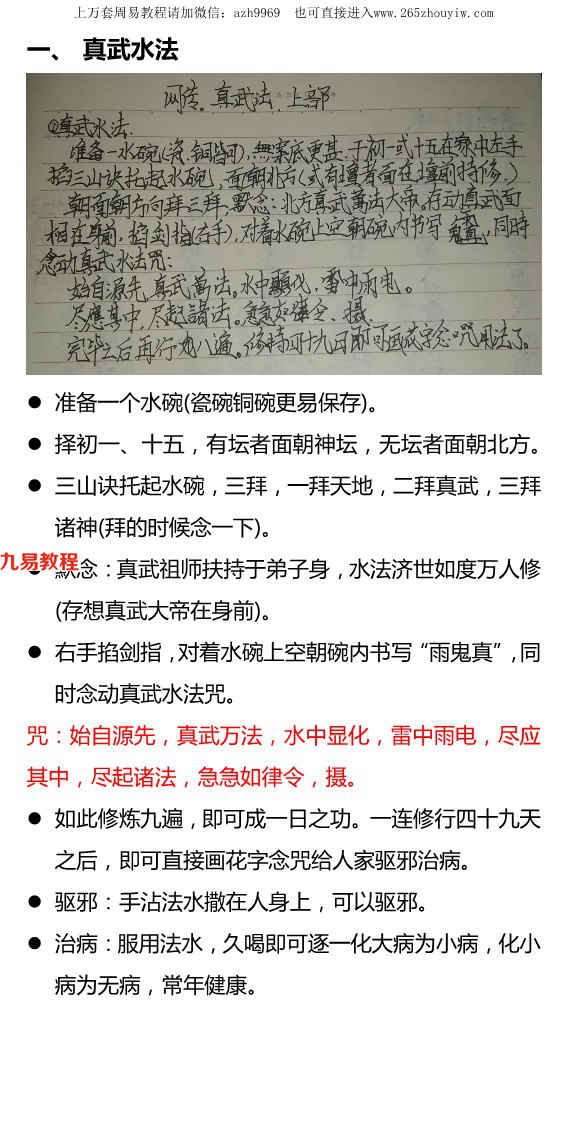 上万套周易教程请加微信：azh9969 也可直接进入www.265zhouyiw.com
一、 真武水法
网传。真武法。上部
真武水法.
准备一水碗(瓷、铜皆可),無案底更甚,于初一或十五在家中左手
掐三山诀托起水碗，面朝北方(或有壇者面在壇前持修,)
朝面朝方向拜三拜,默念：北方真武萬法大帝。存动真武面
相在身前，掐剑指(右手),对着水碗上空朝碗内书写 ,同時
念动真武水法咒：
始自源先,真武萬法。水中顯化,雷中雨电。
尽應其中,尽起諸法。急急如律令、攝。
完毕之后再行此八遍。修持四十九日即可画花字念咒用法了。
● 准备一个水碗(瓷碗铜碗更易保存)。
● 择初一、十五，有坛者面朝神坛，无坛者面朝北方。
● 三山诀托起水碗，三拜，一拜天地，二拜真武，三拜
诸神(拜的时候念一下)。
九易教程
● 默念：真武祖师扶持于弟子身，水法济世如度万人修
(存想真武大帝在身前)。
● 右手掐剑指，对着水碗上空朝碗内书写“雨鬼真”，同
时念动真武水法咒。
咒：始自源先，真武万法，水中显化，雷中雨电，尽应
其中，尽起诸法，急急如律令，摄。
● 如此修炼九遍，即可成一日之功。一连修行四十九天
之后，即可直接画花字念咒给人家驱邪治病。
● 驱邪：手沾法水撒在人身上，可以驱邪。
● 治病：服用法水，久喝即可逐一化大病为小病，化小
病为无病，常年健康。